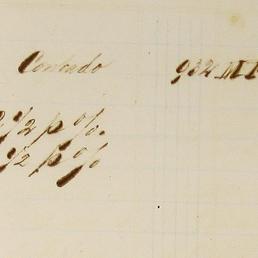 Contado 932
1/2 p %.
1/2 p %